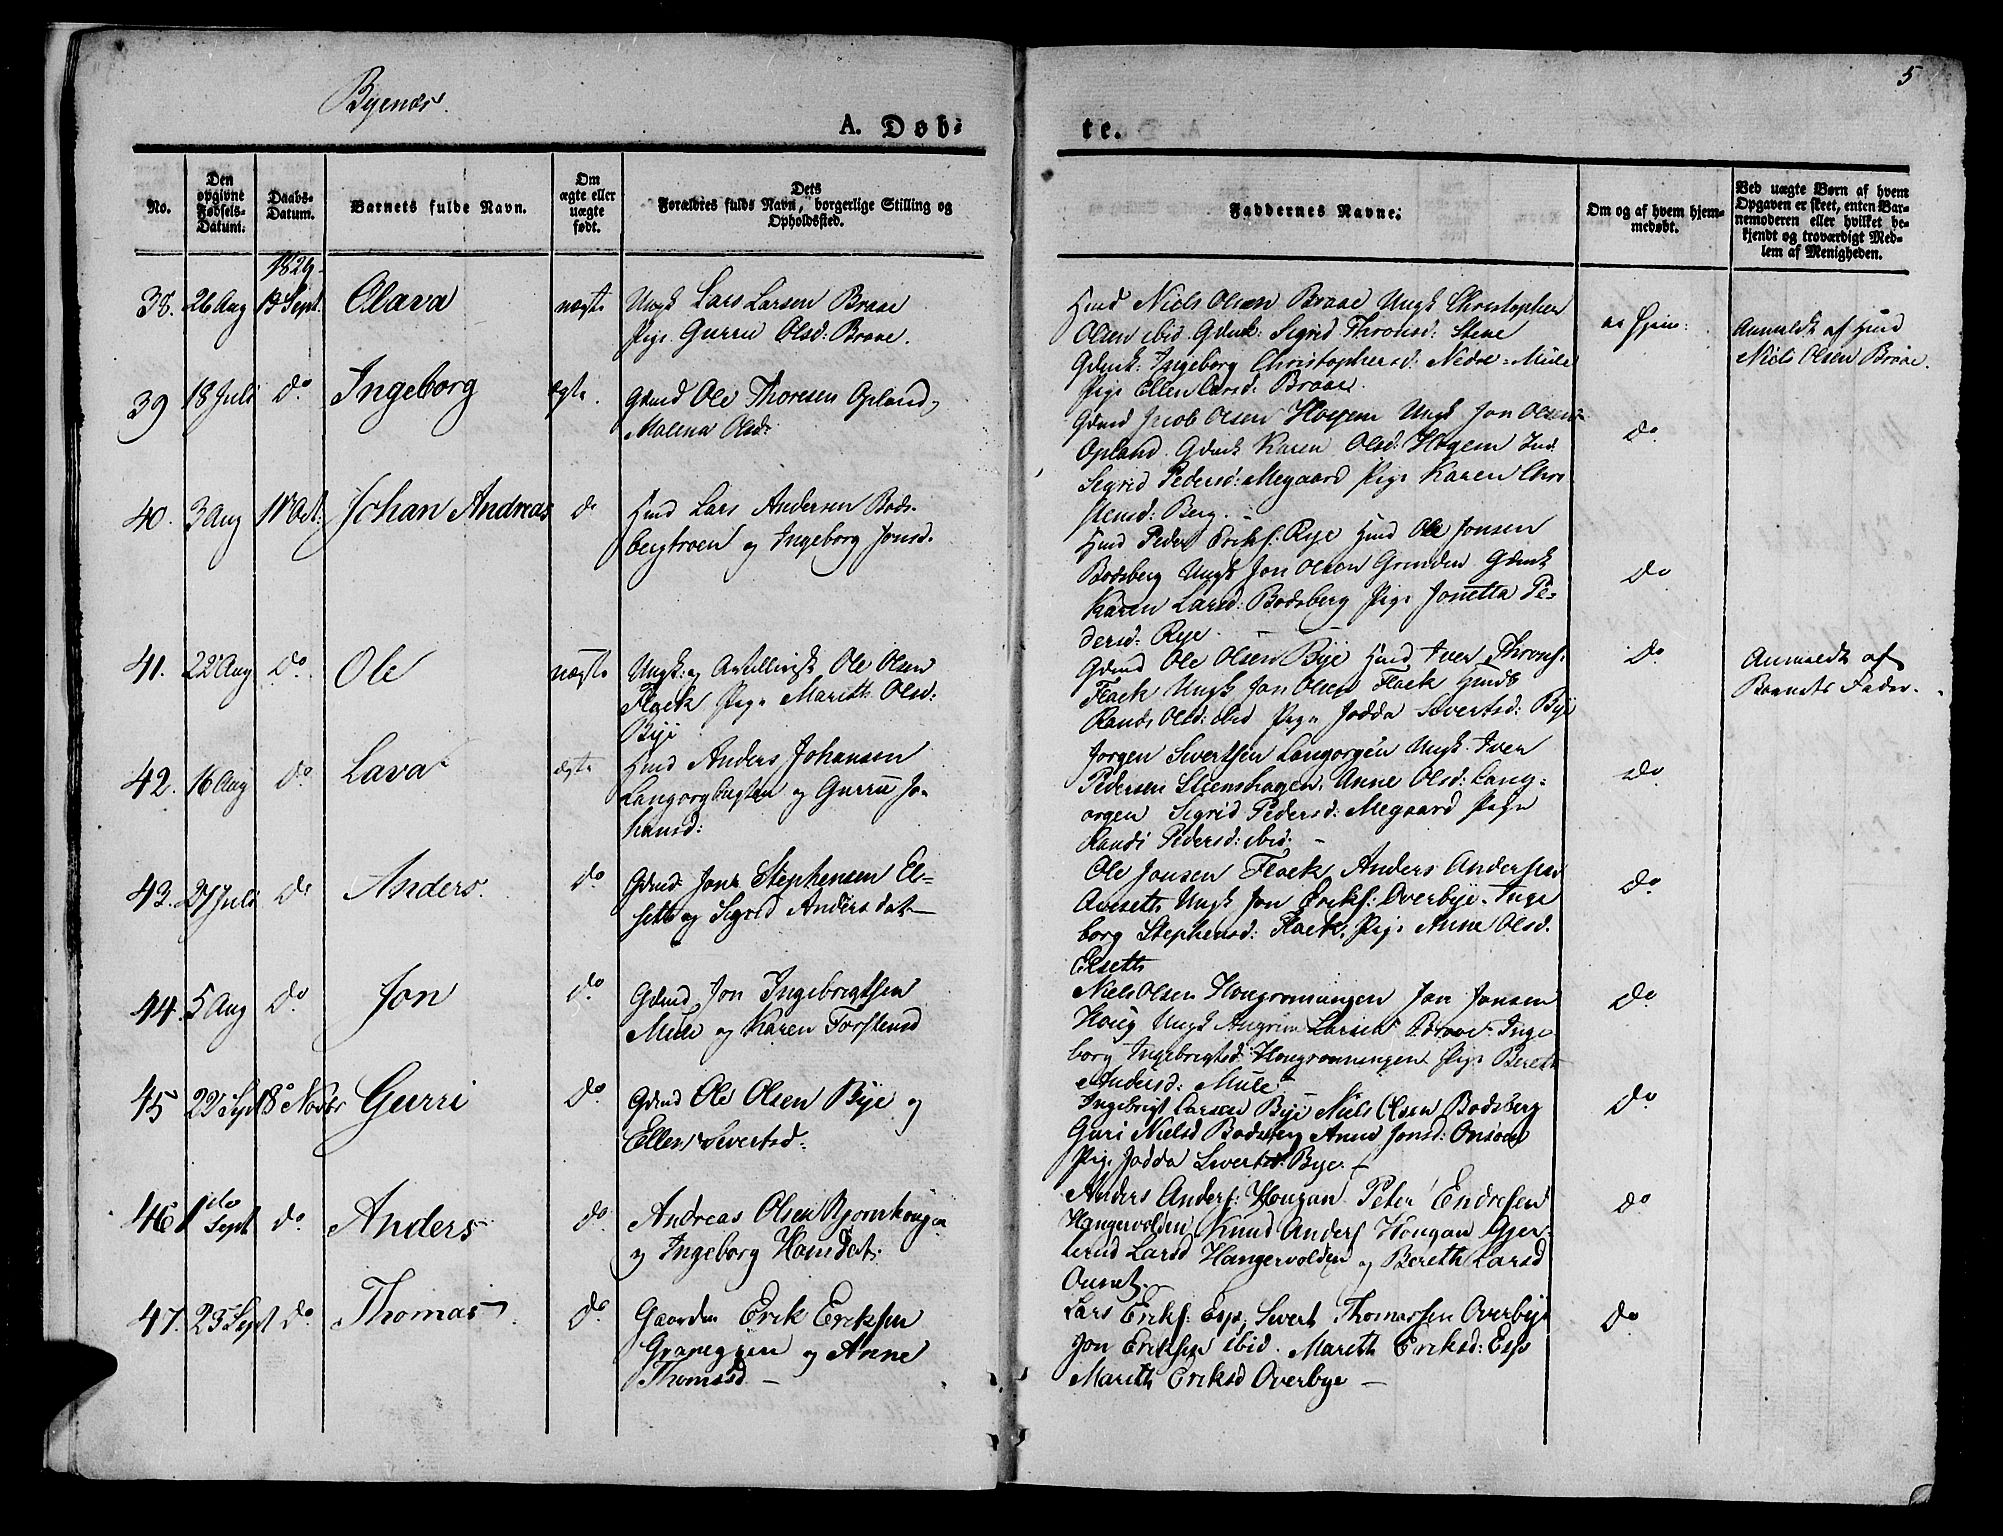 Byenæs.
5
A. Døb-
te.
No.
Den opgivne Fødsels-Datum.
Daabs-Datum.
Barnets fulde Navn.
Om ægte eller uægte født.
Dets Forældres fulde Navn, borgerlige Stilling og Opholdssted.
Faddernes Navne.
Om og af hvem hjem-medøbt.
Ved uægte Børn af hvem Opgaven er skeet, enten Bar-nemoderen eller hvilket be-kjendt og troværdigt Med-lem af Menigheden.
1829
38. 26 Aug 13 Sept. Olava uægte Ungk Lars Larsen Braae
Pige Gurru Olsd: Braae.
Hmd Niels Olsen Braae Ungk Christopher
Olsen ibid Gdmk: Sigrid Thronsd: Stene
Gdmk: Ingeborg Christophersd: Nedre-Mule
Pige Ellen Larsd: Braae.
ei Hjem:
Anmeldt af Hmd
Niels Olsen Braae.
39 18 Juli do Ingeborg ægte. Gdmd Ole Thoresen Opland,
Malena Olsd:
Gdmd Jacob Olsen Hogem Ungk Jon Olsen
Opland. Gdmk Karen Olsd: Hogem Ind.
Sigrid Pedersd: Megaard Pige Karen Chri
stensd: Berg.
do
40. 3 Aug 11 Oct: Johan Andreas do Hmd Lars Andersen Bods-
bergtroen og Ingeborg Jonsd.
Hmd Peder Erikf: Rye Hmd Ole Jonsen
Bodsberg Ungk Jon Olson Grinden Gdmk
Karen Larsd: Bodsberg Pige Jonetta Pe-
dersd: Rye.
do
41. 22 Aug do. Ole uægte Ungk: og Artillerisk Ole Olsen
Flaek Pige Marith Olsd:
Bye
Gdmd Ole Olsen Bye Hmd Iver Throns.
Flaek Ungk Jon Olsen Flaek Hmdk
Randi Olsd: ibid Pige Jodda Sivertsd: Bye
do
Anmeldt af
Barnets Fader.
42. 16 Aug do. Lava ægte Hmd Anders Johansen
Langorgbugten og Gurru Jo-
hansd:
Jorgen Sivertsen Langorgen Ungk. Iver
Pedersen Steenshagen, Anne Olsd: Lang-
orgen Sigrid Pedersd: Megaard Pige
Randi Pedersd: ibid:
do.
43. 27 Juli do Anders. do. Gdmd Jon Stephensen El-
seth og Sigrid Andersdat
Ole Jonsen Flaek, Anders Andersen
Aunseth Ungk Jon Erikf: Overbye. Inge
borg Stephensd: Flaek, Pige Anne Olsd.
Elseth
do
44. 5 Aug do. Jon do. Gdmd Jon Ingebrigtsen
Mule og Karen Torstensd
Niels Olsen Hougronningen Jon Jonsen
Houg Ungk Angrim Larsen Braae. Inge
borg Ingebrigtsd: Hougronningen Pige Bereth
Andersd: Mule
do.
45 22 Sept 8 Novbr Gurri do. Gdmd Ole Olsen Bye og
Ellen Sivertsd:
Ingebrigt Larsen Bye Niels Olsen Bodsberg
Guri Nielsd Bodsberg Anne Jonsd: Onsoen
Pige Jodda Sivertsd: Bye.
do
46 1do Sept do. Anders do. Andreas Olsen Bjornhougen
og Ingeborg Hansdat:
Anders Andersf: Hougan Peter Endresen
Hangervolden Knud Andersf Hougan Gjer-
trud Larsd Hangervolden og Bereth Larsd
Ounet.
do
47. 23 Sept do. Thomas do. Gaardm Erik Eriksen
Graneggen og Anne
Thomasd
Lars Eriksf: Esp, Sivert Thomassen Overbye
Jon Eriksen ibid. Marith Eriksd: Esps
Marith Eriksd Overbye
do.